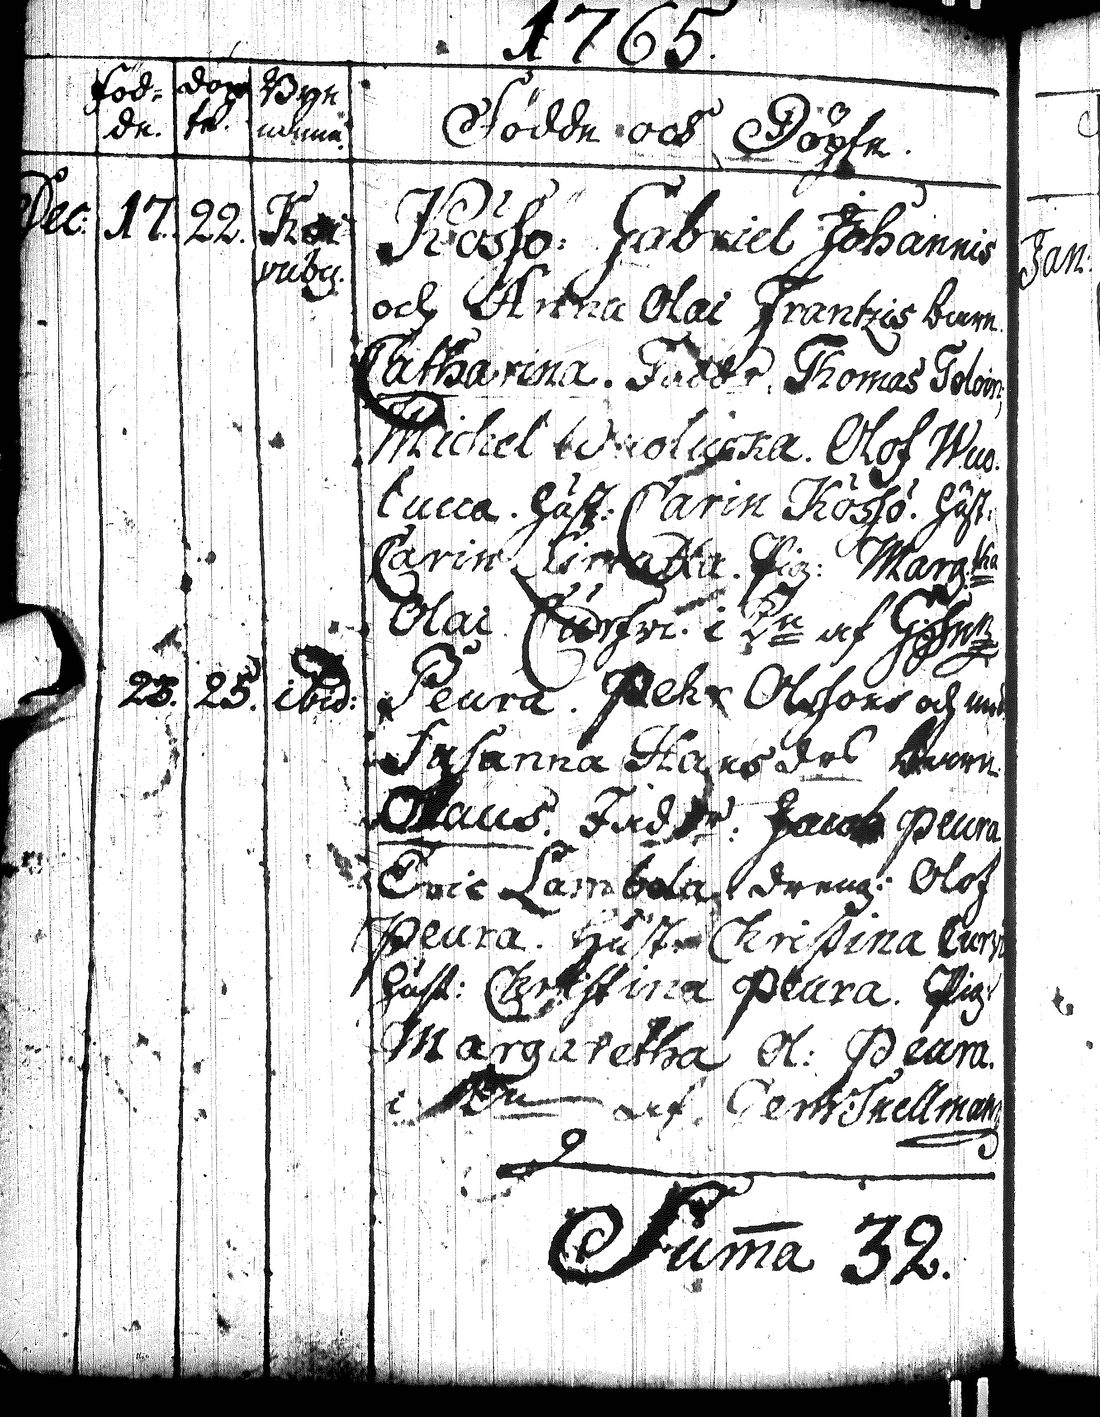 1765.
föd= döp Byar
de. te. namn.
Födde och Döpte.
Dec: 17. 22. Kai Kössö: Gabriel Johannis
vuby. och Anna Olai Frantzis barn
Catharina. Fadd:r. Thomas
Michel Olof Wuo.
lucca. hust: Carin Kössö. hust:
Carin pig: Marg:tha
Olai i af
23. 25. ibid: Peura. Pehr Olssons och
Susanna Hansdr barn
Olaus. Fadd:r: Jacob Peura
Eric Lambela, dreng: Olof
Peura. Hust: Christina
hust: Christina Peura. Pig:
Margaretha Ol: Peura.
i af Snellman
Suma 32.
Jan: